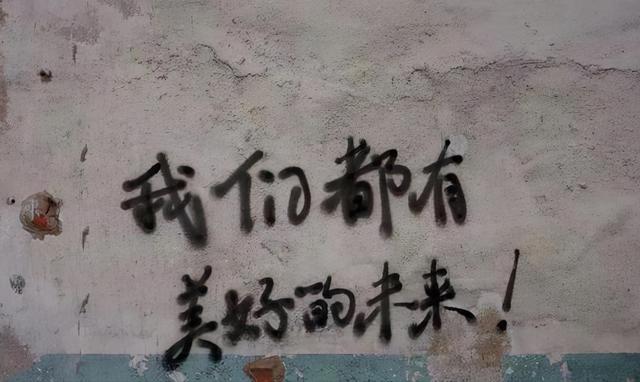 我们都有
美好的未来！